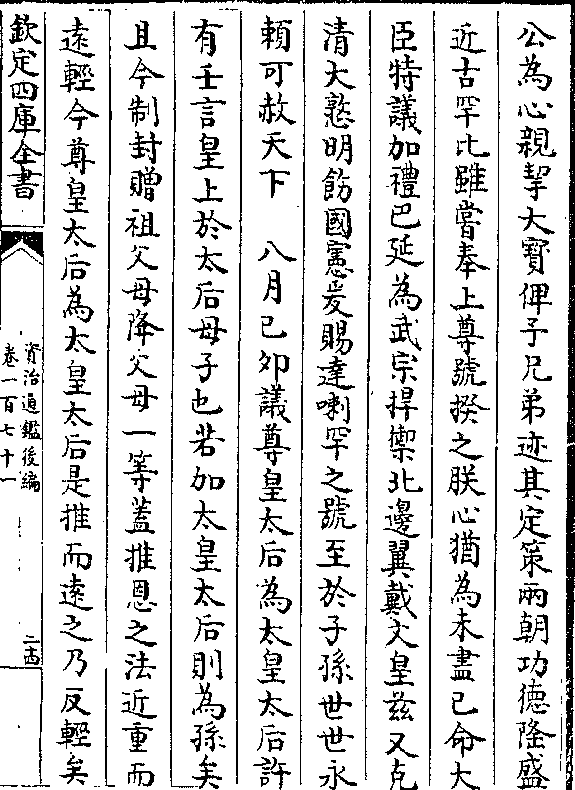 公為心親挈大寶俾予兄弟迹其定策兩朝功德隆盛
近古罕比雖嘗奉上尊號揆之朕心猶為未盡已命大
臣特議加禮巴延為武宗捍禦北邊翼戴文皇兹又克
清大憝明飭國憲爰賜達喇罕之號至於子孫世世永
賴可赦天下　八月已夘議尊皇太后為太皇太后許
有壬言皇上於太后母子也若加太皇太后則為孫矣
且今制封贈祖父母降父母一等蓋推恩之法近重而
逺輕今尊皇太后為太皇太后是推而逺之乃反輕矣
欽定四庫全書
資治通鑑後編
卷一百七十一
二十四